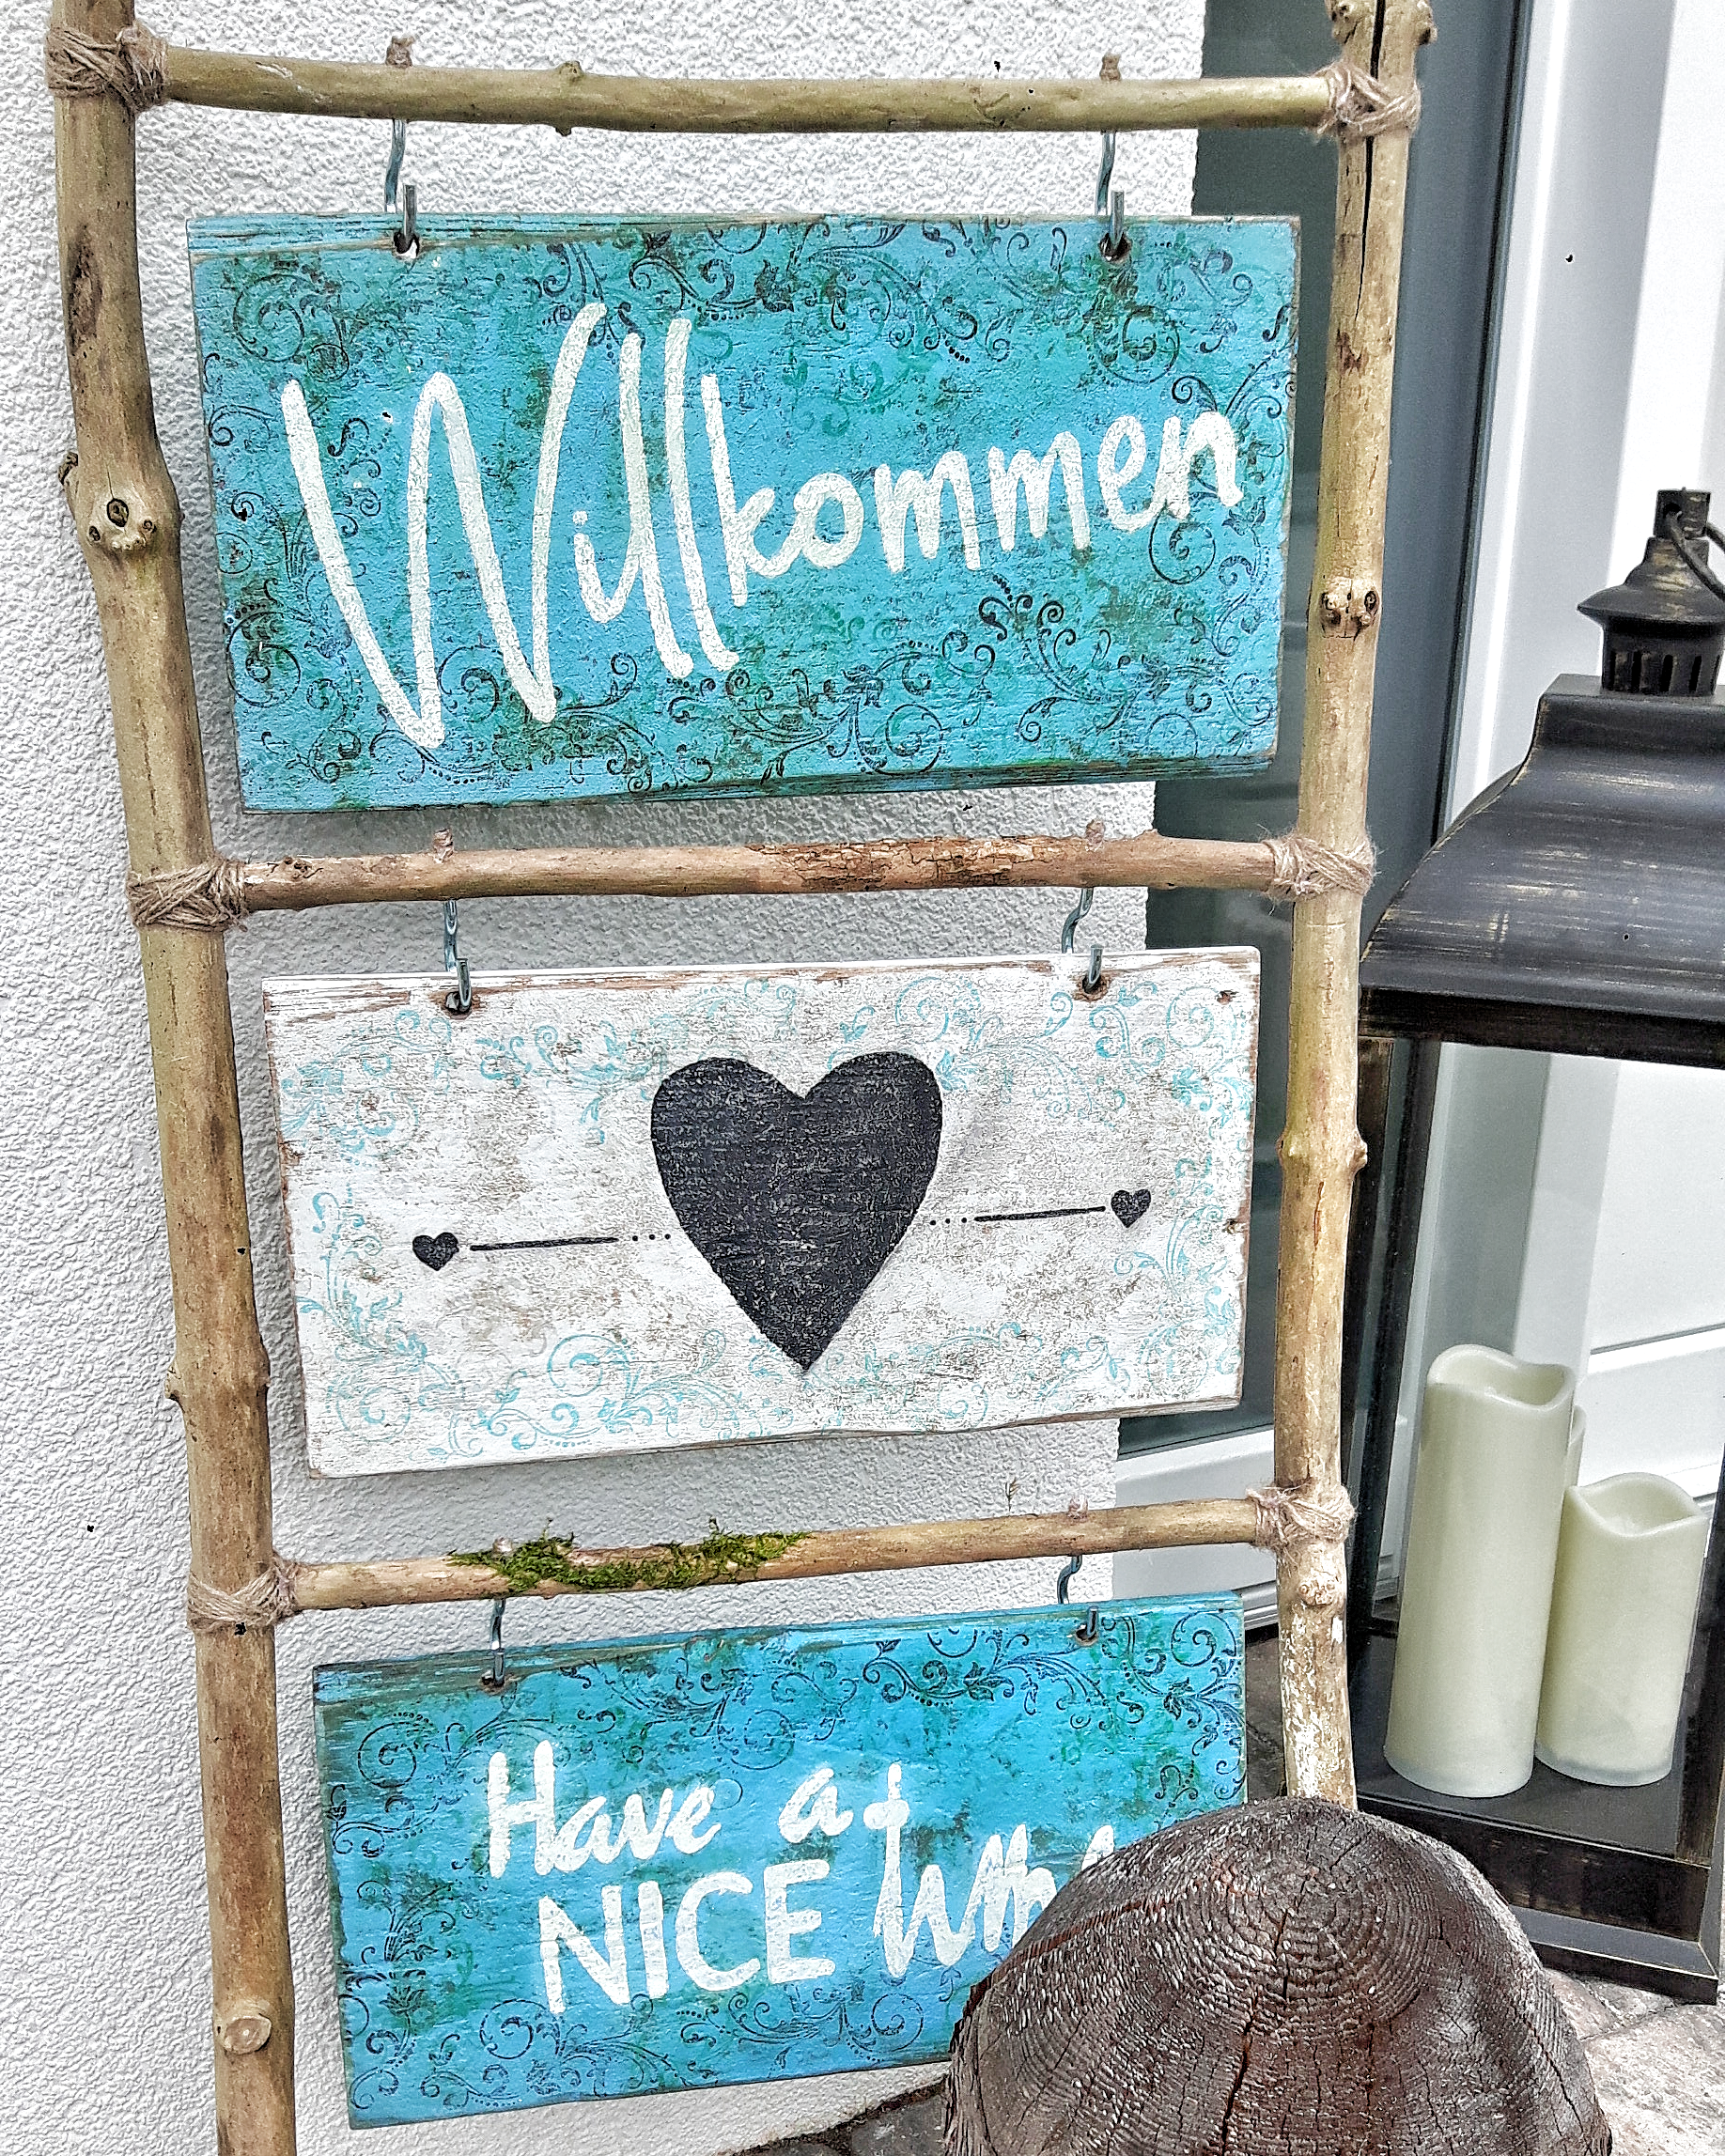 Willkommen
Have a
NICE